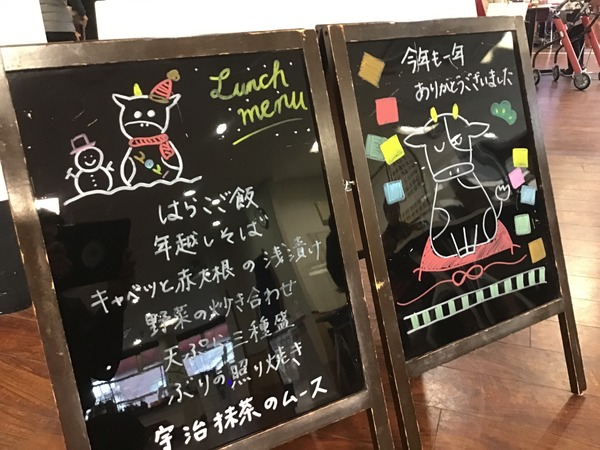 Lunch
menu
はらこご飯
年越しそば
キャベツと赤大根の浅漬け
野菜の炒き合わせ
天ぷら三種盛
ぶりの照り焼き
宇治抹茶のムース
今年も一年
ありがとうございました